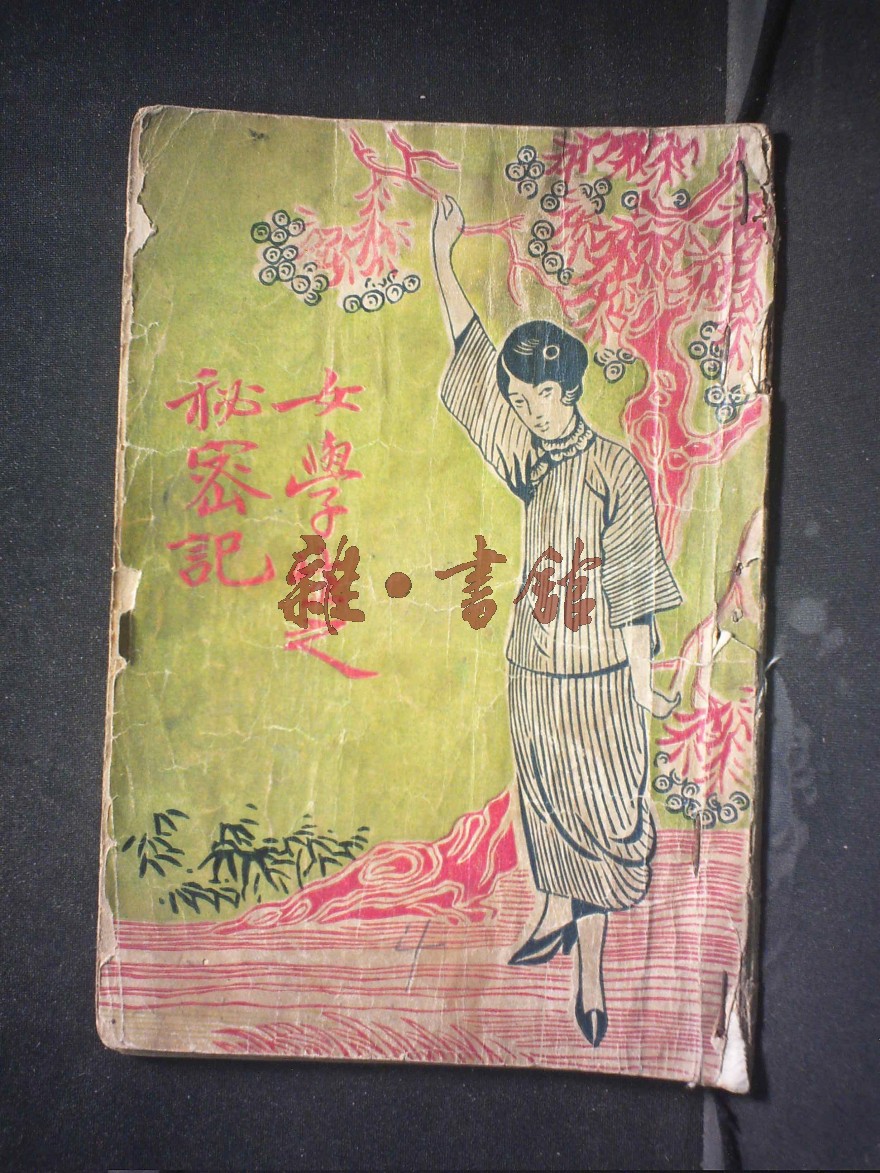 女學生之
秘密記
雜·書館